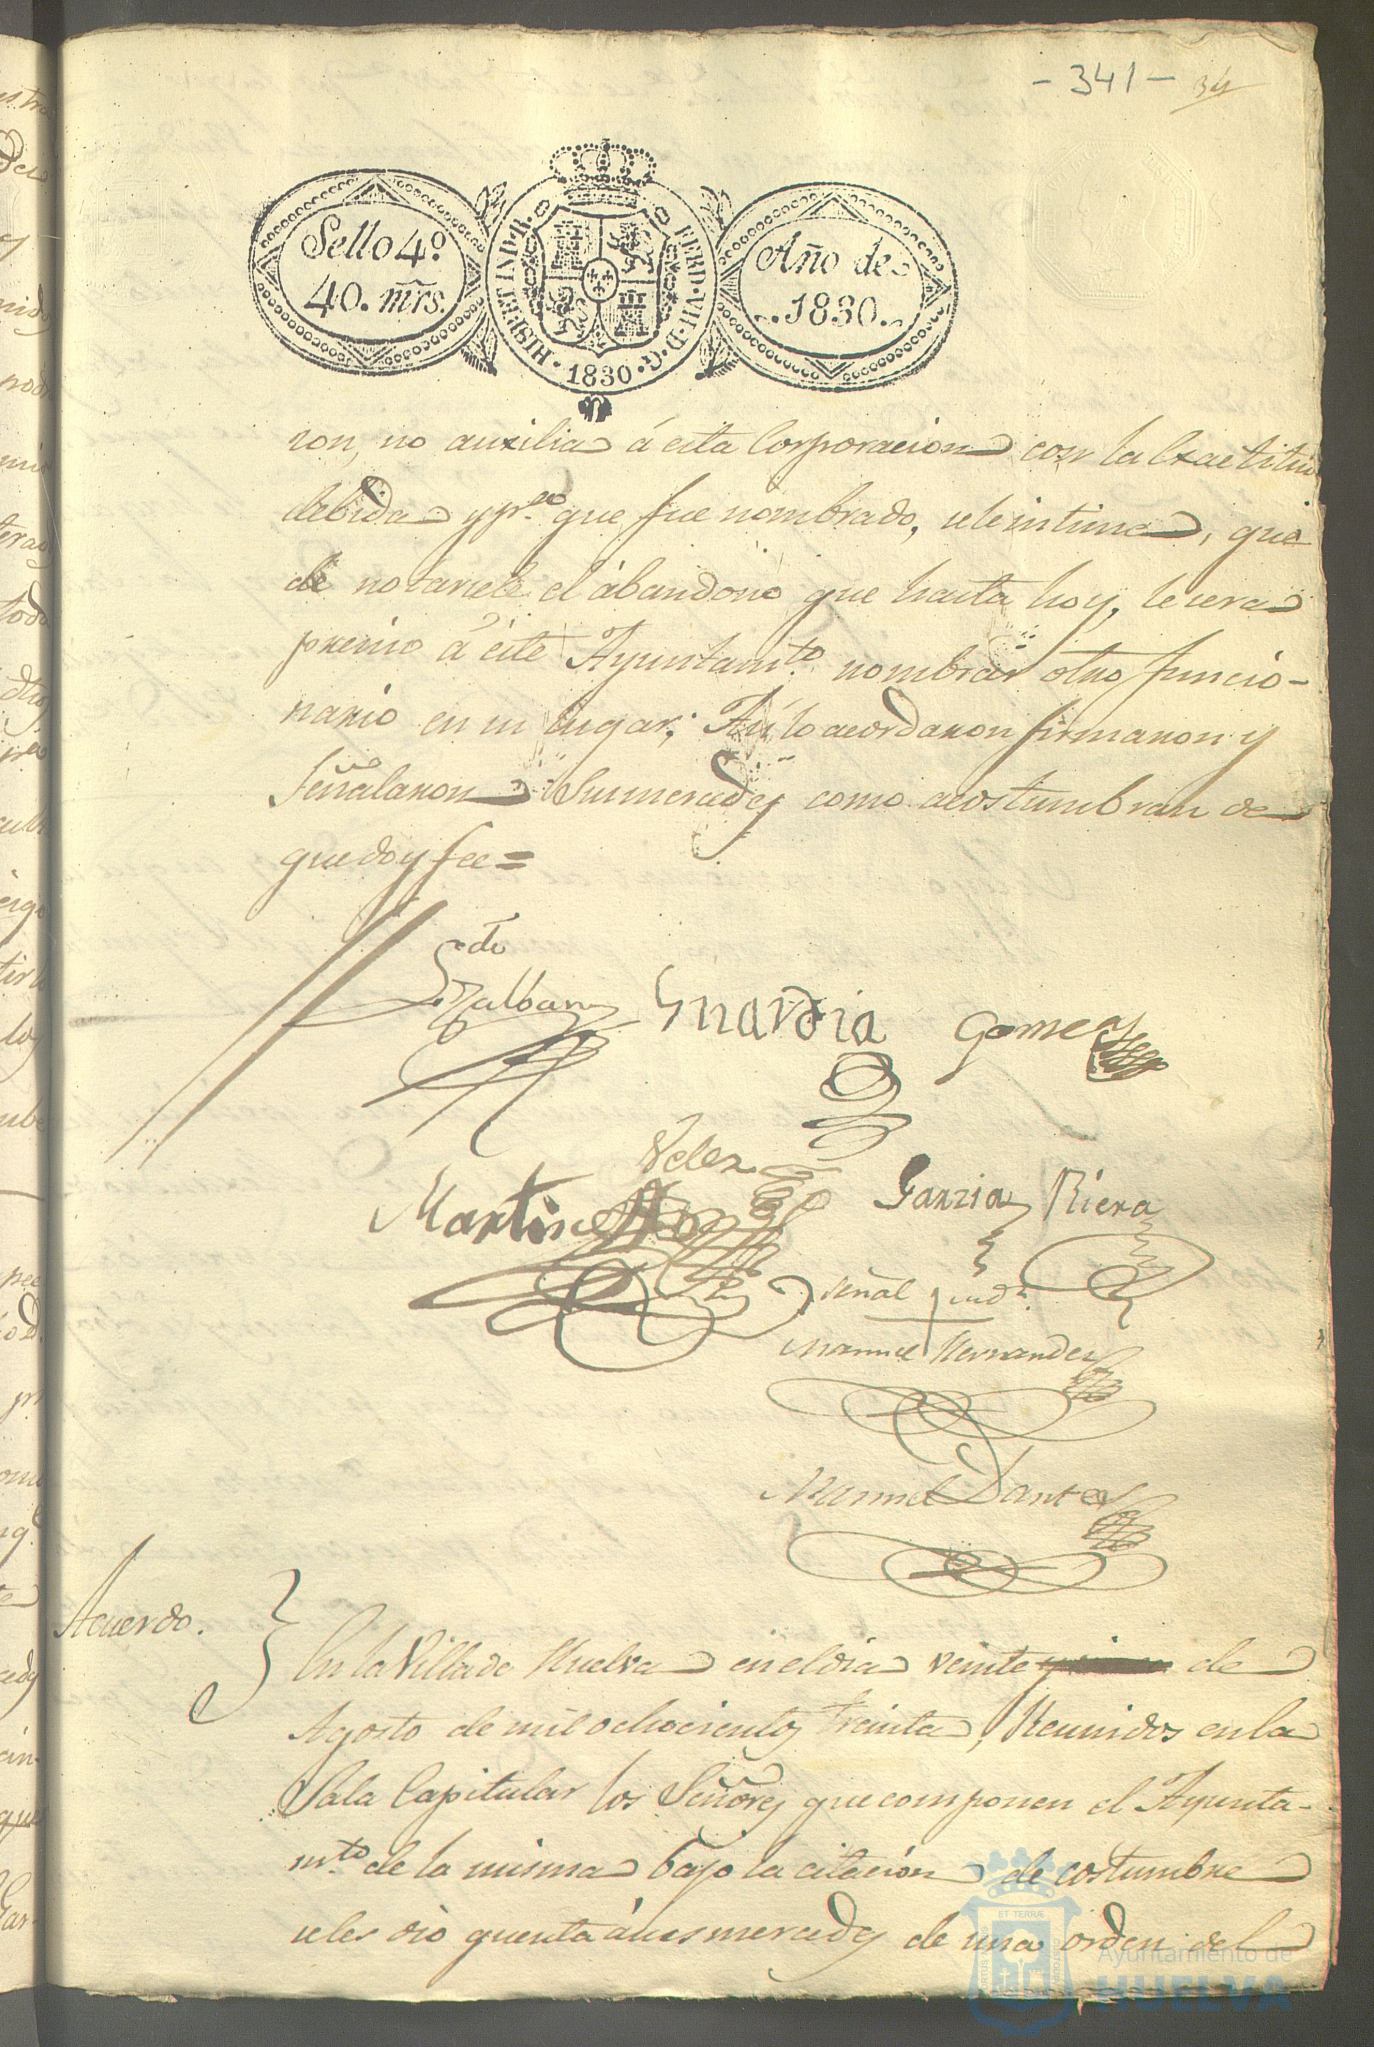 - 341 - 34
Sello 4º
40. mrs.
HISP. ET IND. R. FERD. VII. D. G. 1830
Año de
1830.
ron, no auxilia á esta Corporacion con la Exactitud
debida y pª que fue nombrado, sele intima, que
de notarsele el ábandono que hasta hoy, le sera
presiso á este Ayuntamto nombrar otro funcio-
nario en su lugar; Asi lo acordaron firmaron y
Señalaron Sus mercedes como acostumbran de
que doy fee =
Galban
Guardia
Gomez
Velez
Martinez
Garzia
Riera
señal
Manuel Hernandez
Manuel Dantes
Acuerdo.
En la Villa de Huelva en el dia veinte de
Agosto de mil ochocientos treinta, Reunidos en la
Sala Capitular los Señores que componen el Ayunta-
mto de la misma bajo la citación de costumbre
seles dio quenta á sus mercedes de una orden del
Ayuntamiento de
HUELVA